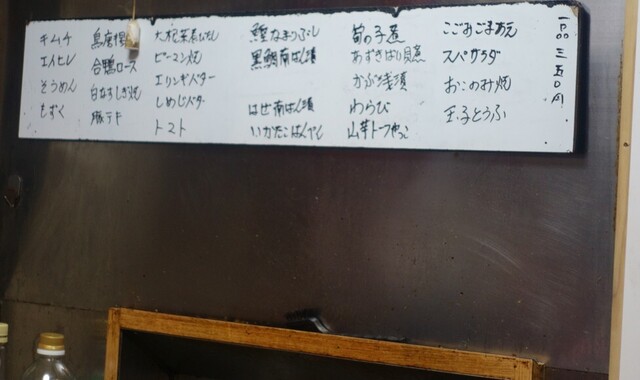 一品 三五〇円
こごみごまあえ
スパサラダ
おこのみ焼
玉子とうふ
筍の子煮
あずきばい貝煮
かぶ浅漬
わらび
山芋トーフやっこ
鰹なまりぶし
黒鯛南ばん漬
はぜ南ばん漬
いかたこはんぺん
大根葉煮びたし
ピーマン焼
エリンギバター
しめじバター
トマト
鳥唐揚
合鴨ロース
白なすしぎ焼
豚テキ
キムチ
エイヒレ
そうめん
もずく